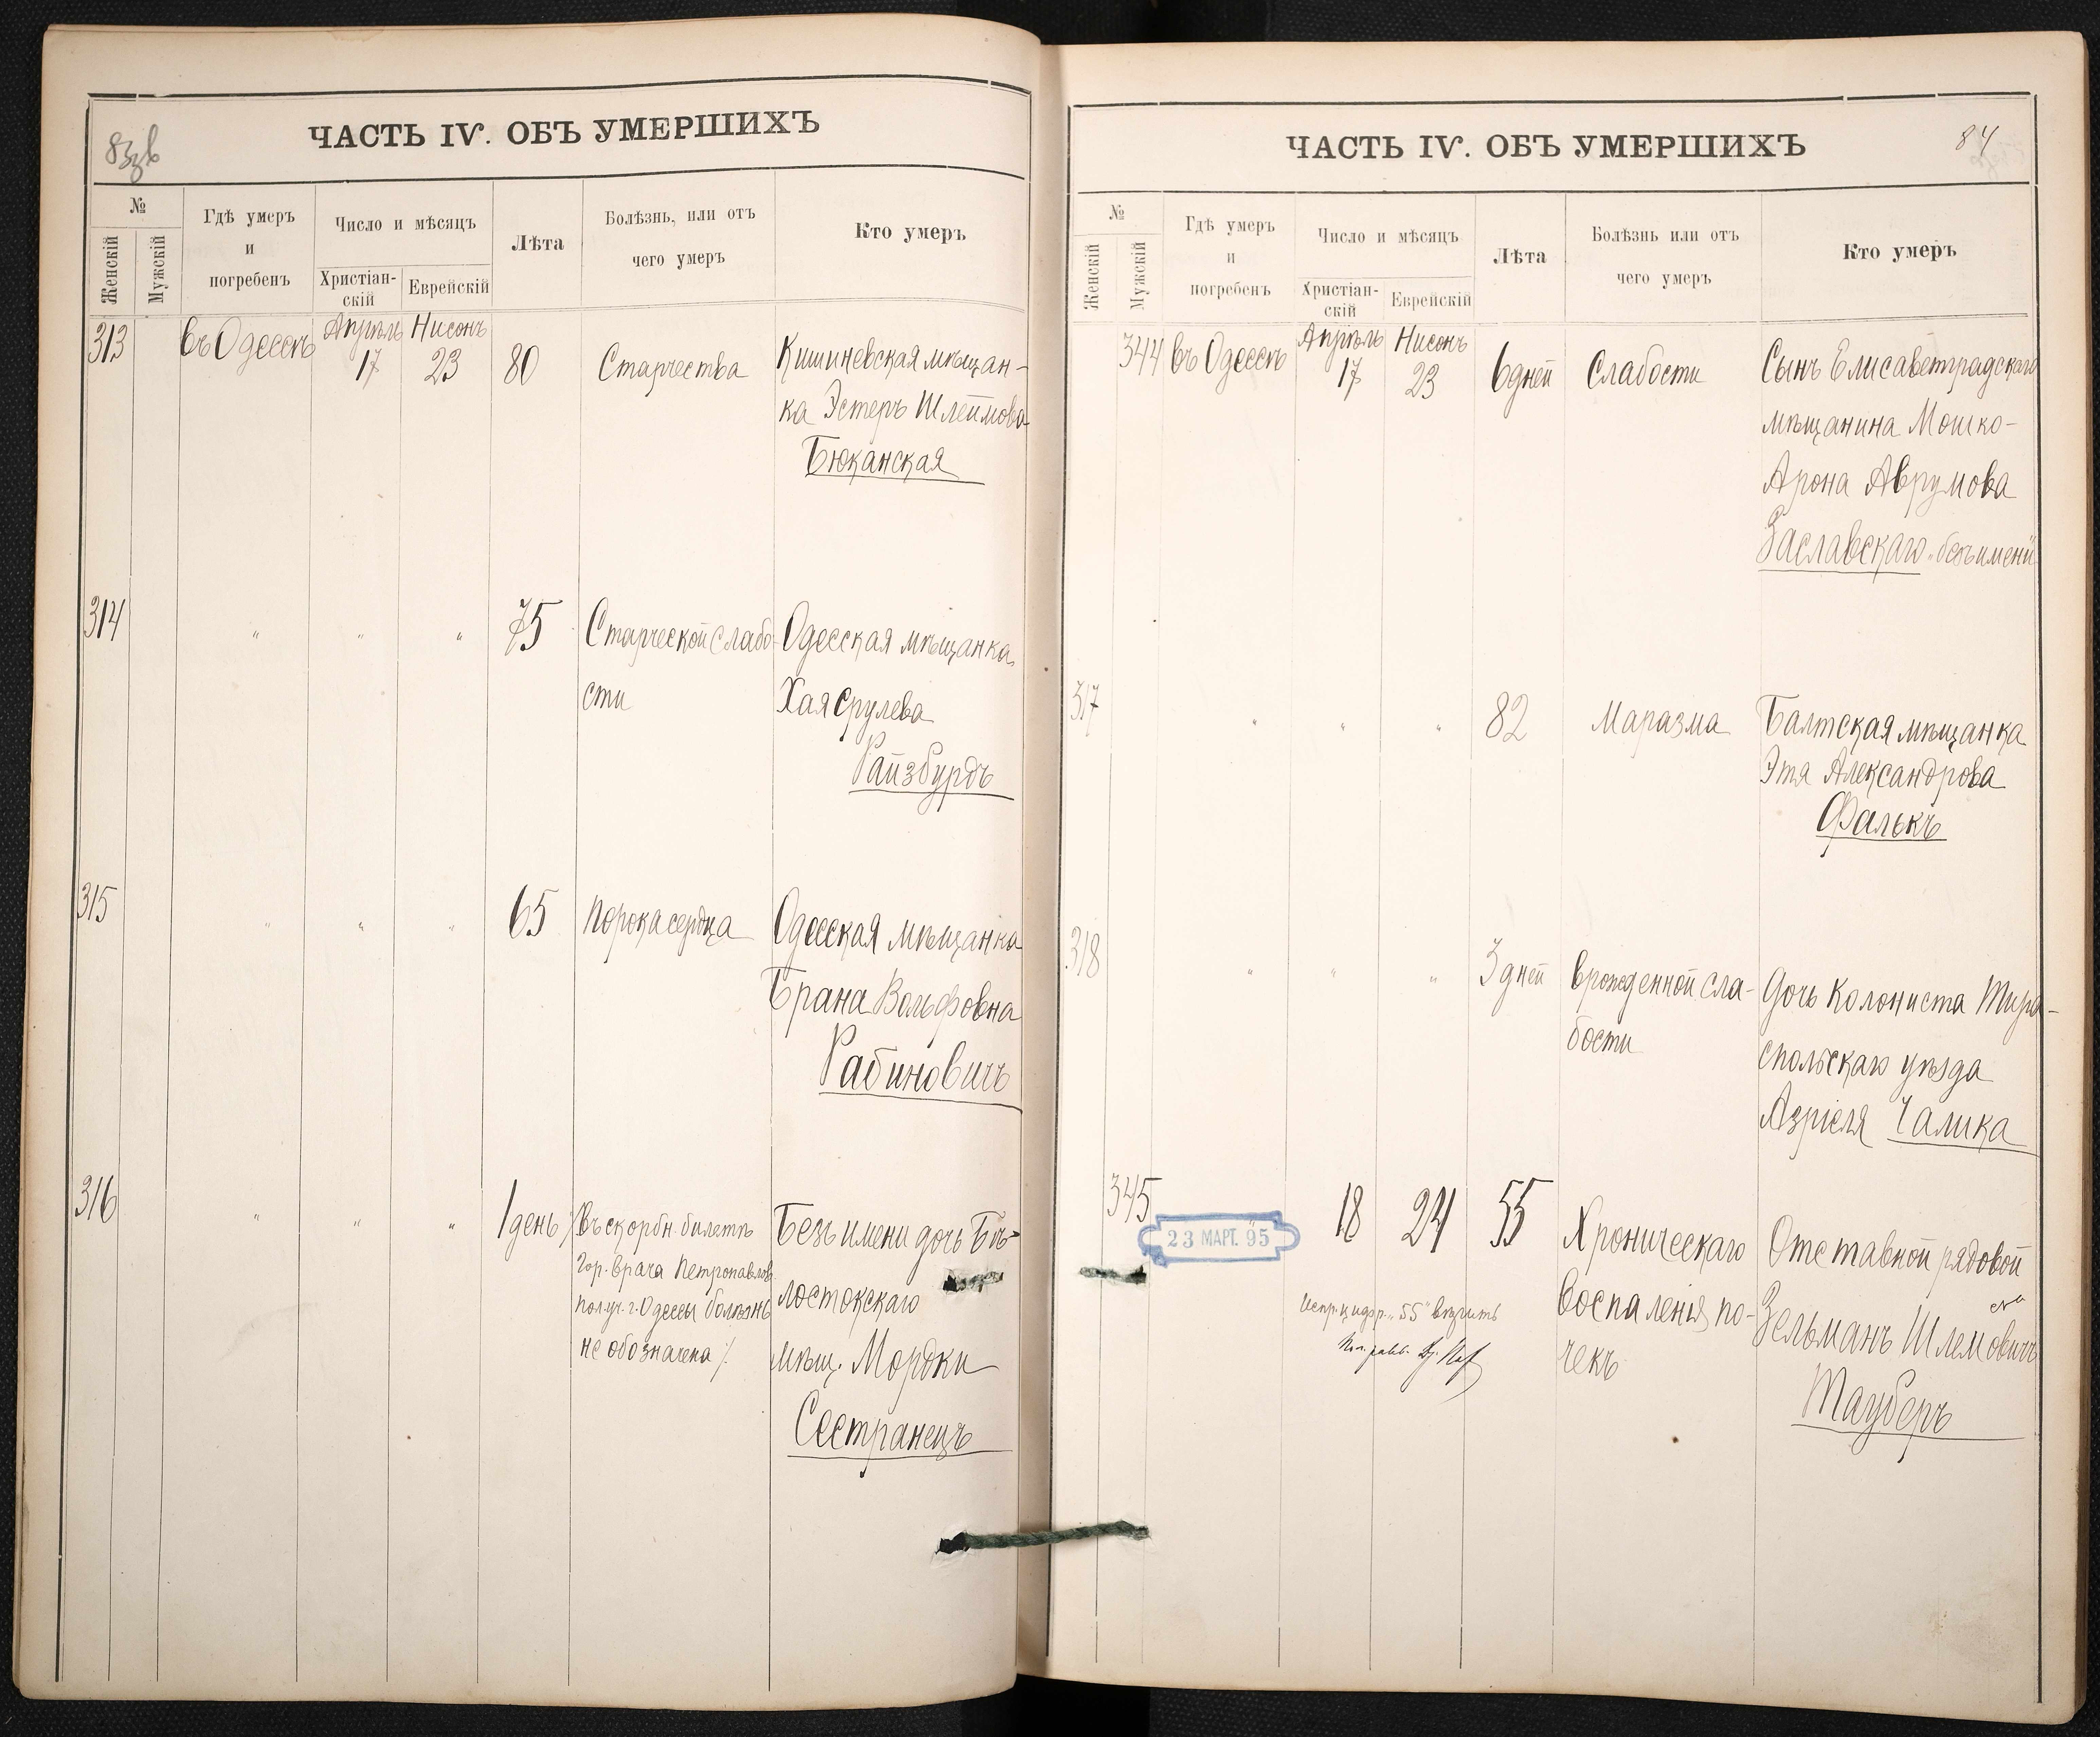 83об
ЧАСТЬ IV. ОБЪ УМЕРШИХЪ
№
Женскій
Мужскій
Гдѣ умеръ
и
погребенъ
Число и мѣсяцъ
Христіан-
скій
Еврейскій
Лѣта
Болѣзнь, или отъ
чего умеръ
Кто умеръ
313 въ Одессѣ Апрѣль 17 Нисонъ 23 80 Старчества Кишиневская мѣщан-
ка Эстеръ Шлеймова
Бюканская
314 " " " 75 Старческой слабо- Одесская мѣщанка
сти Хая Срулева
Райзбурдъ
315 " " " 65 Порока сердца Одесская мѣщанка
Брана Вольфовна
Рабиновичъ
316 " " " 1 день /Въ скорбн. билетѣ Безъ имени дочь Бѣ-
Гор. врача Петропавлов. лостокскаго
пол. уч. г. Одессы болѣзнь мѣщ. Мордки
не обозначена/. Сестранецъ
84
ЧАСТЬ IV. ОБЪ УМЕРШИХЪ
№
Женскій
Мужскій
Гдѣ умеръ
и
погребенъ
Число и мѣсяцъ
Христіан-
скій
Еврейскій
Лѣта
Болѣзнь или отъ
чего умеръ
Кто умеръ
344 въ Одессѣ Апрѣль 17 Нисонъ 23 6 дней Слабости Сынъ Елисаветградскаго
мѣщанина Мошко-
Арона Аврумова
Заславскаго "безъ имени"
317 " " " 82 Маразма Балтская мѣщанка
Этя Александрова
Фалькъ
318 " " " 3 дней врожденной сла- Дочь колониста Тира-
бости спольскаго уѣзда
Азріеля Чалика
345 18 24 55 Хроническаго Отставной рядовой
воспаленія по- Зельманъ Шлемовичъ
чекъ Тауберъ
23 МАРТ. 95
Испр. цифр. "55" вѣрить